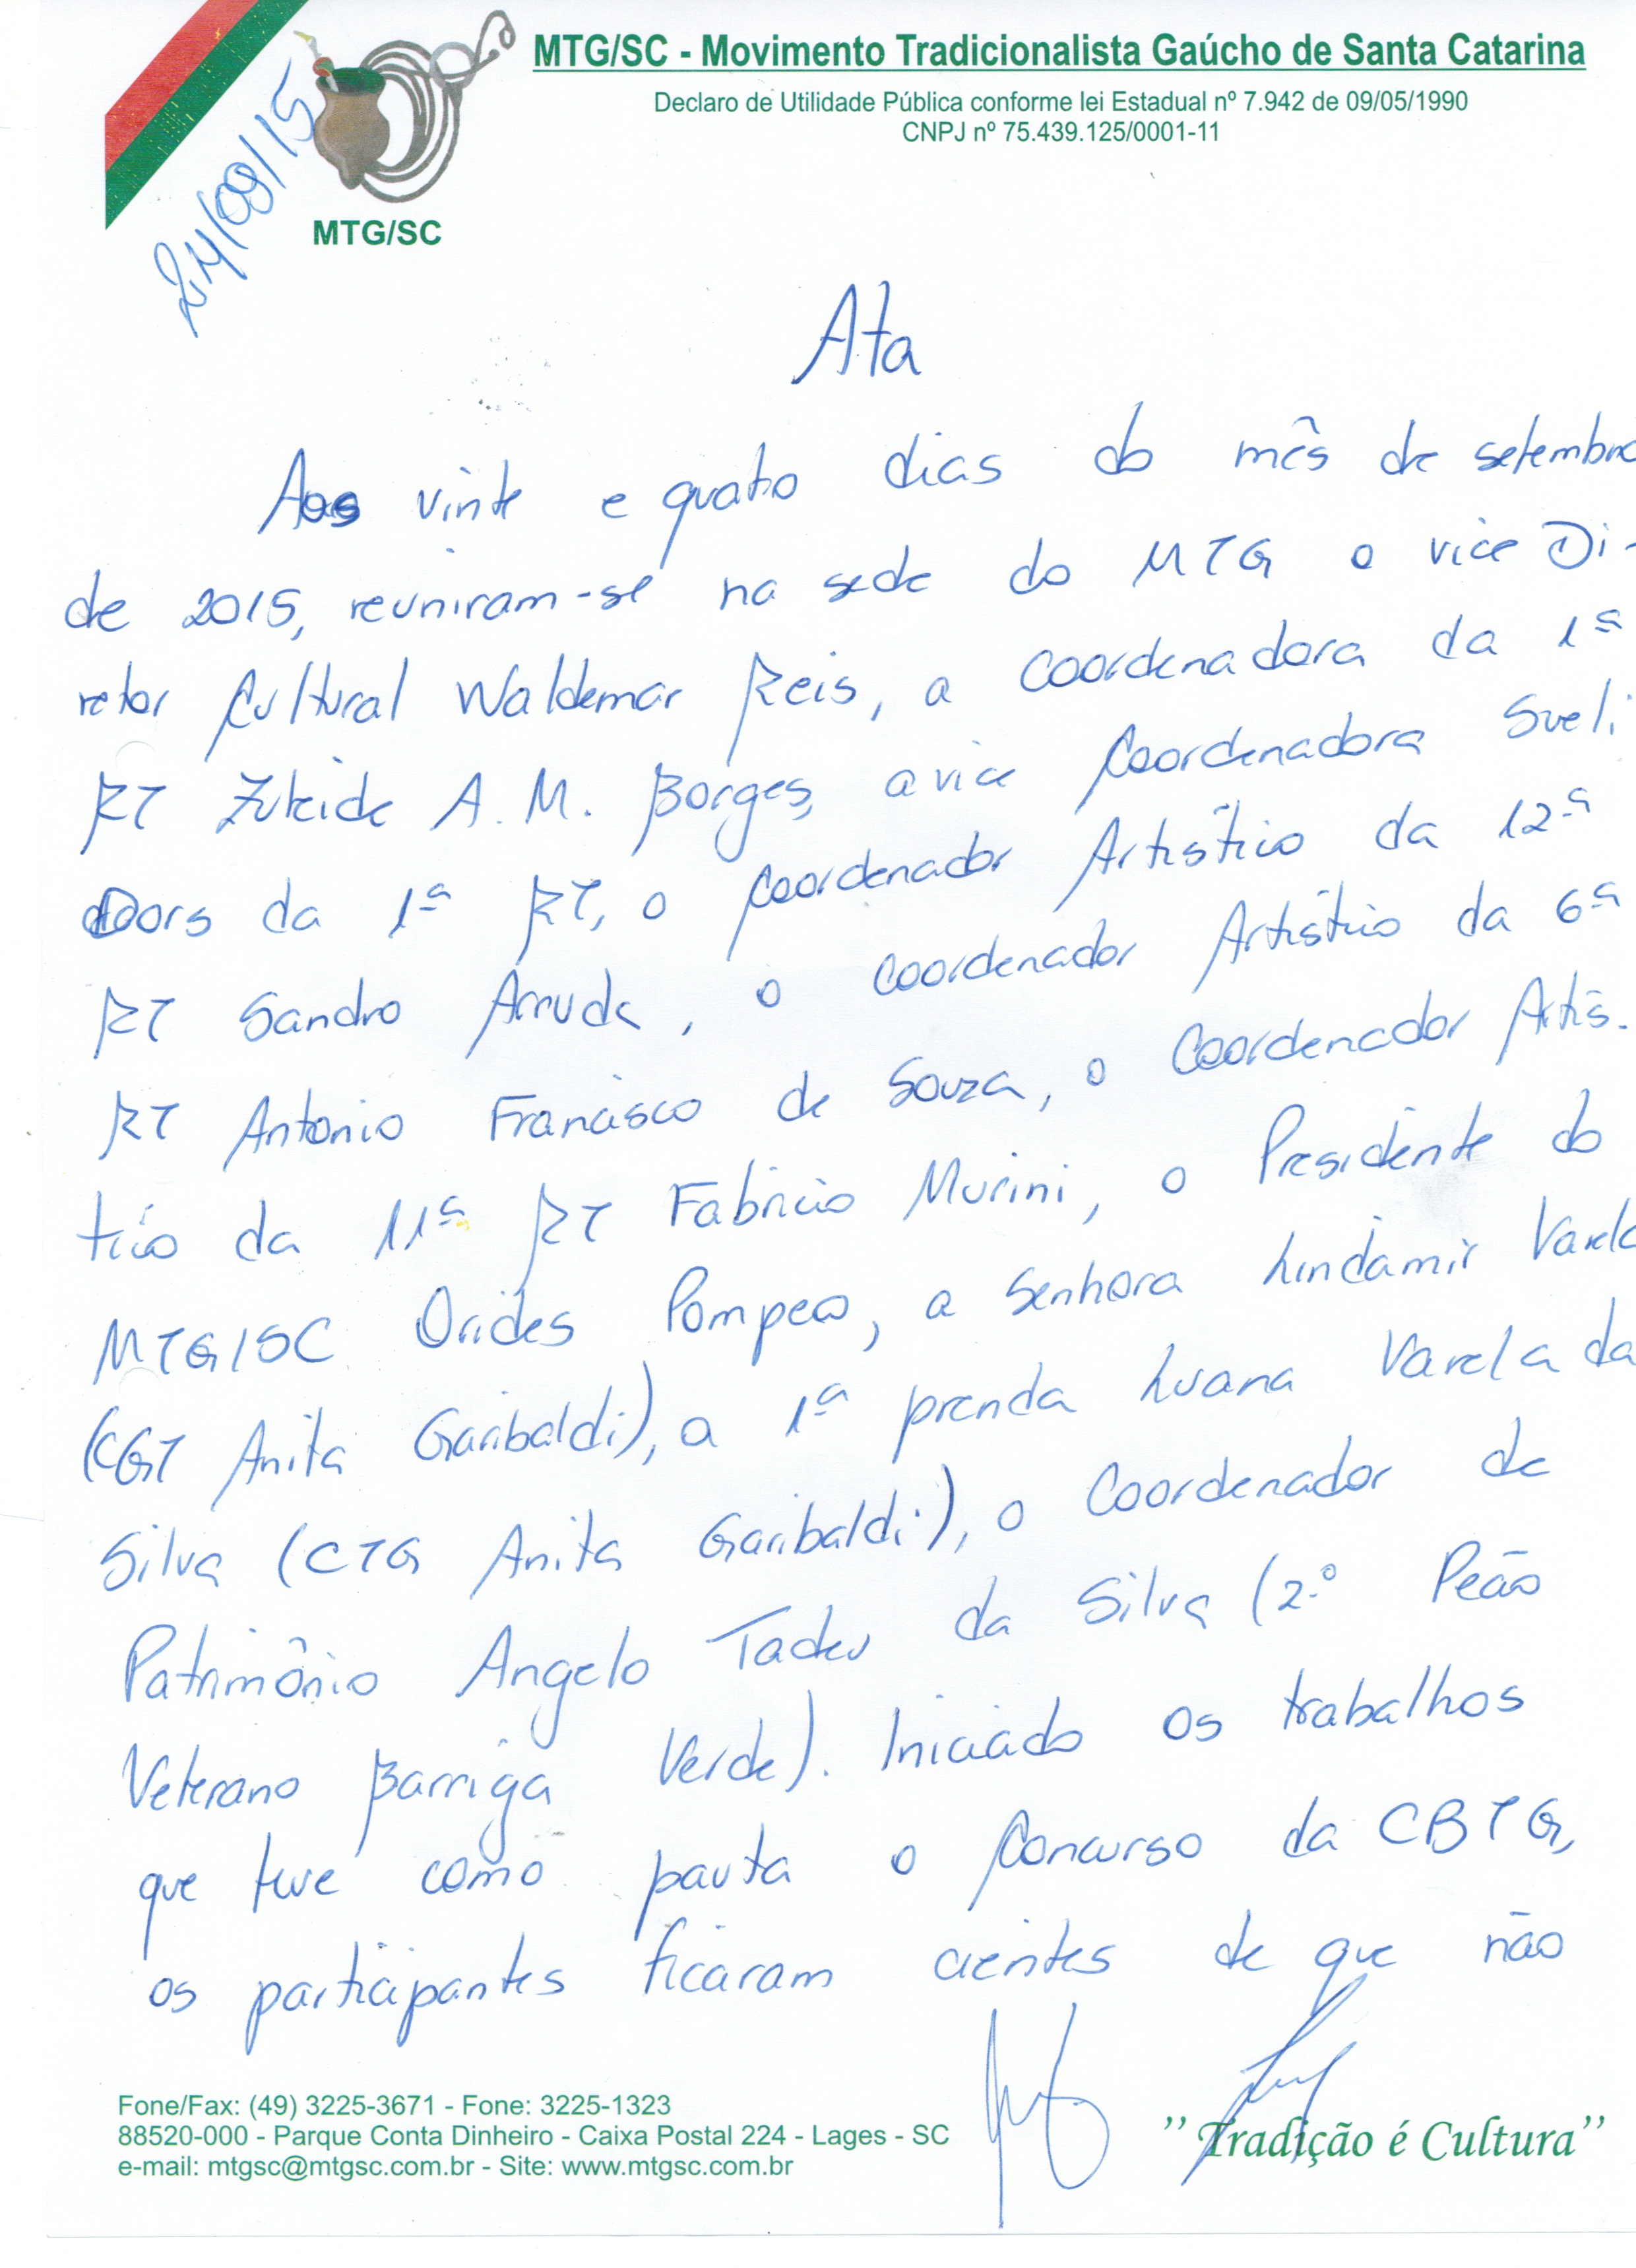 MTG/SC - Movimento Tradicionalista Gaúcho de Santa Catarina
Declaro de Utilidade Pública conforme lei Estadual nº 7.942 de 09/05/1990
CNPJ nº 75.439.125/0001-11
24/09/15
MTG/SC
Ata
Aos vinte e quatro dias do mês de setembro
de 2015, reuniram-se na sede do MTG o vice Di-
retor Cultural Waldemar Reis, a coordenadora da 1ª
RT Zuleide A. M. Borges, a vice Coordenadora Sueli
Dors da 1ª RT, o Coordenador Artístico da 12ª
RT Sandro Arruda, o coordenador Artístico da 6ª
RT Antonio Francisco de Souza, o Coordenador Artís-
tico da 11ª RT Fabricio Murini, o Presidente do
MTG/SC Orides Pompeo, a Senhora Lindamir Varela
(CGT Anita Garibaldi), a 1ª prenda Luana Varela da
Silva (CTG Anita Garibaldi), o Coordenador de
Patrimônio Angelo Tadeu da Silva (2º Peão
Veterano Barriga Verde). Iniciado os trabalhos
que teve como pauta o Concurso da CBTG,
os participantes ficaram cientes de que não
Fone/Fax: (49) 3225-3671 - Fone: 3225-1323
88520-000 - Parque Conta Dinheiro - Caixa Postal 224 - Lages - SC
e-mail: mtgsc@mtgsc.com.br - Site: www.mtgsc.com.br
"Tradição é Cultura"